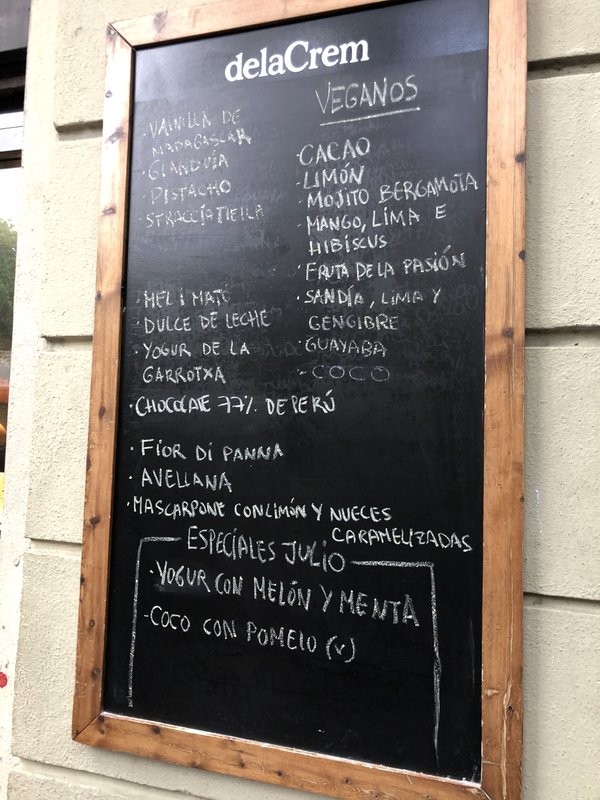 delaCrem
· VAINILLA DE
MADAGASCAR
· GIANDUIA
· PISTACHO
· STRACCIATIELLA
· MEL I MATÓ
· DULCE DE LECHE
· YOGUR DE LA
GARROTXA
· CHOCOLATE 77% DE PERÚ
· FIOR DI PANNA
· AVELLANA
· MASCARPONE CON LIMÓN Y NUECES
CARAMELIZADAS
VEGANOS
· CACAO
· LIMÓN
· MOJITO BERGAMOTA
· MANGO, LIMA E
HIBISCUS
· FRUTA DE LA PASIÓN
· SANDÍA, LIMA Y
GENGIBRE
· GUAYABA
· COCO
ESPECIALES JULIO
· YOGUR CON MELÓN Y MENTA
· COCO CON POMELO (v)